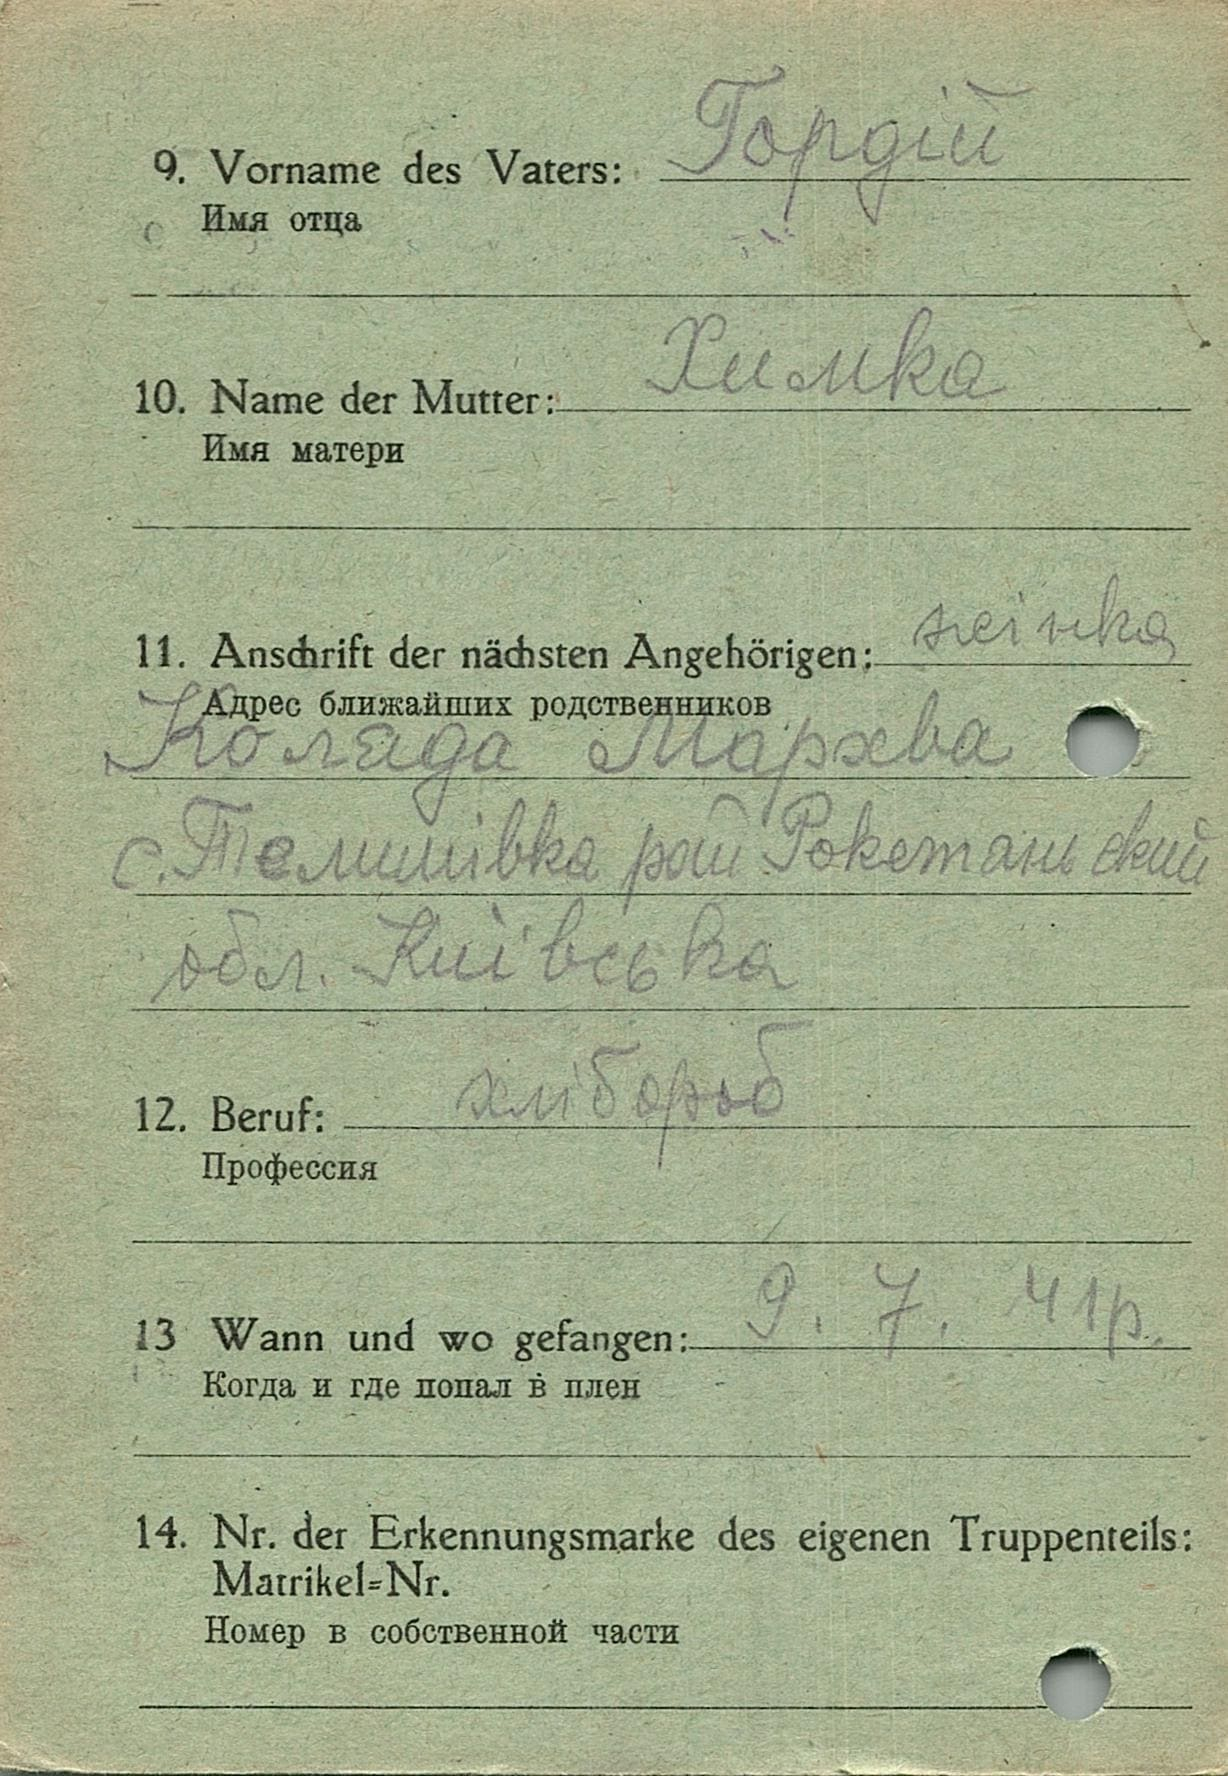 9. Vorname des Vaters: Гордій
Имя отца
10. Name der Mutter: Химка
Имя матери
11. Anschrift der nächsten Angehörigen: жінка
Адрес ближайших родственников
Коляда Мархва
с. рай Рокетанський
обл. Київська
12. Beruf: хлібороб
Профессия
13 Wann und wo gefangen: 9. 7. 41р.
Когда и где попал в плен
14. Nr. der Erkennungsmarke des eigenen Truppenteils:
Matrikel=Nr.
Номер в собственной части